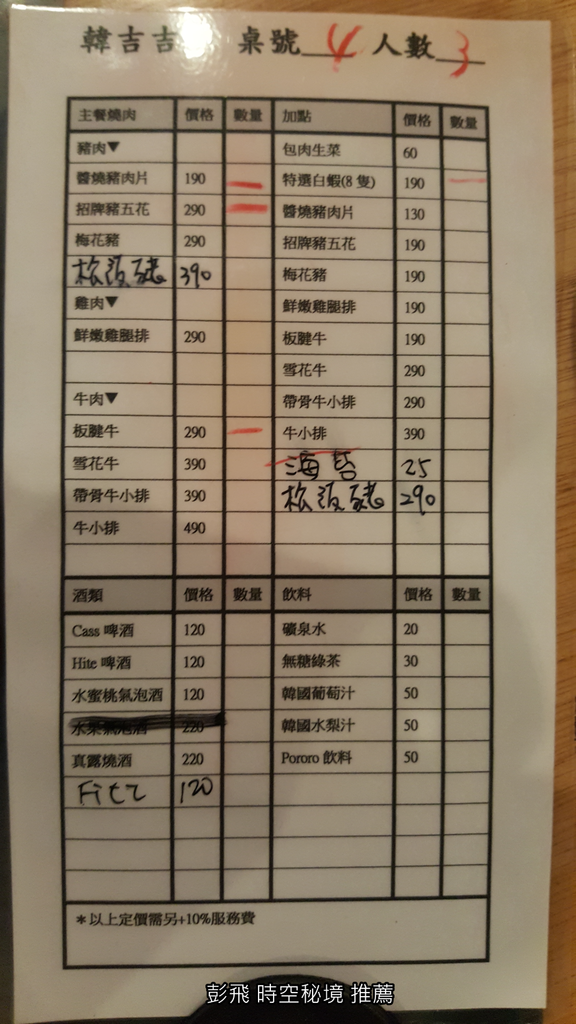 韓吉吉 桌號 4 人數 3
主餐燒肉 價格 數量 加點 價格 數量
豬肉▼ 包肉生菜 60
醬燒豬肉片 190 特選白蝦(8 隻) 190
招牌豬五花 290 醬燒豬肉片 130
梅花豬 290 招牌豬五花 190
松阪豬 390 梅花豬 190
雞肉▼ 鮮嫩雞腿排 190
鮮嫩雞腿排 290 板腱牛 190
雪花牛 290
牛肉▼ 帶骨牛小排 290
板腱牛 290 牛小排 390
雪花牛 390 海苔 25
帶骨牛小排 390 松阪豬 290
牛小排 490
酒類 價格 數量 飲料 價格 數量
Cass 啤酒 120 礦泉水 20
Hite 啤酒 120 無糖綠茶 30
水蜜桃氣泡酒 120 韓國葡萄汁 50
水果氣泡酒 220 韓國水梨汁 50
真露燒酒 220 Pororo 飲料 50
Fitz 120
＊以上定價需另+10%服務費
彭飛 時空秘境 推薦